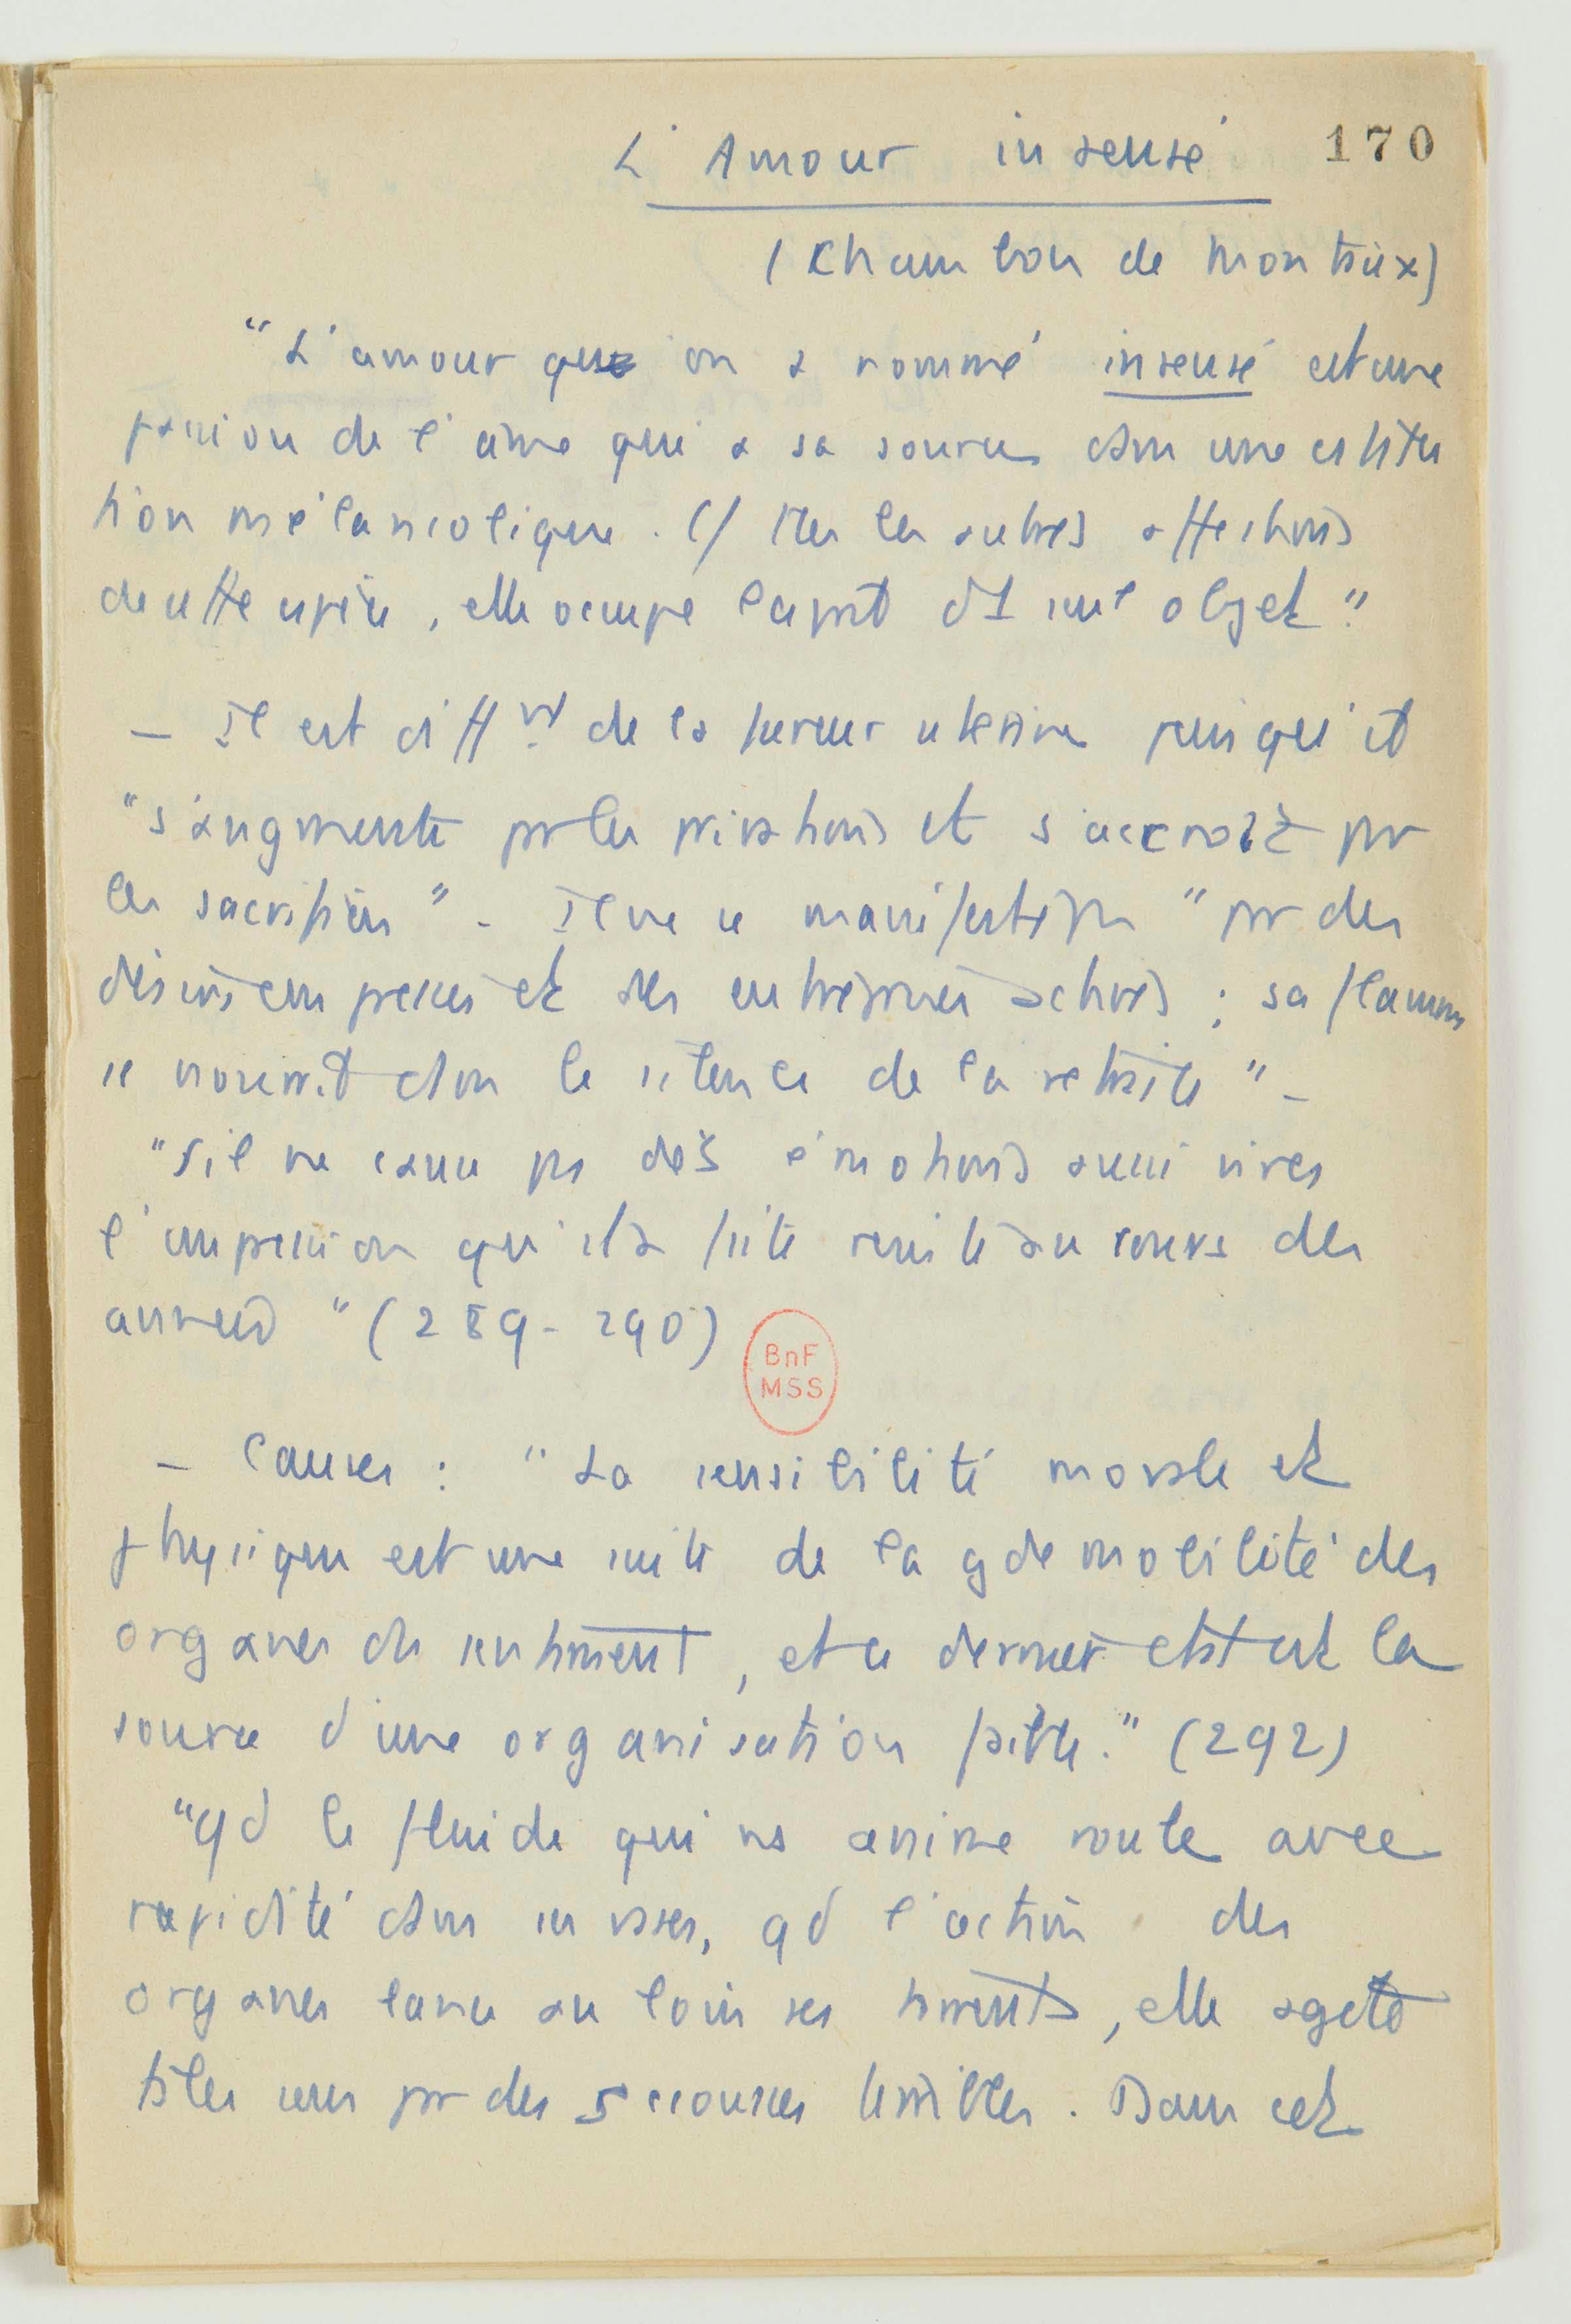 L'Amour insensé
170
(Chambon de Montaux)
"L'amour qu'on a nommé insensé est une
passion de l'âme qui a sa source dans une constitu
tion mélancolique. Cf ttes les autres affections
de cette espèce, elle occupe l'esprit d'1 seul objet."
– Il est différt de la fureur utérine puisqu'il
"s'augmente par les privations et s'accroît par
les sacrifices". Il ne se manifeste pas "par des
désirs empressés et des entreprises actives ; sa flamme
se nourrit dans le silence de la retraite" –
"S'il ne cause pas des émotions aussi vives
l'impression qu'il a faite résiste au cours des
années" (289-290)
BnF
MSS
– Causes : "La sensibilité morale et
physique est une suite de la gde mobilité des
organes du sentiment, et ce dernier état est la
source d'une organisation faible." (292)
"Qd le fluide qui ns anime roule avec
rapidité dans ses vases, qd l'action des
organes lance au loin ses, elle agite
ts les sens par des secousses terribles. Dans cet